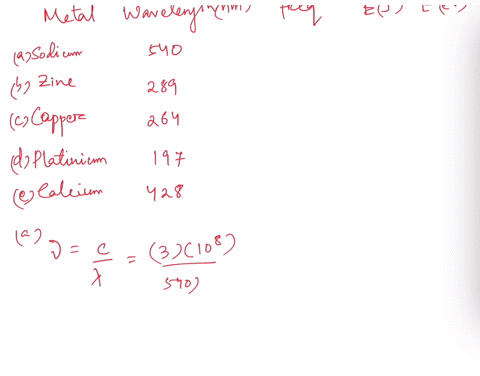 Metal Wavelength(nm) freq E(J)
(a) Sodium 540
(b) Zinc 289
(c) Copper 264
(d) Platinium 197
(e) Calcium 428
(a) ν = c/λ = (3)(10⁸)/540)